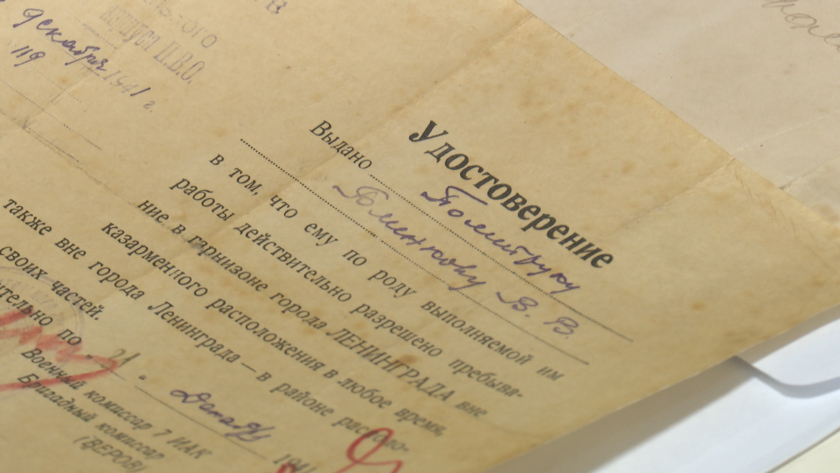 декабря 1941 г.
119
Удостоверение
Выдано Политруку
В. В.
в том, что ему по роду выполняемой им
работы действительно разрешено пребыва-
ние в гарнизоне города ЛЕНИНГРАДА вне
казарменного расположения в любое время,
также вне города Ленинграда — в районе располо-
своих частей.
по „31" декабря 1941
Военный комиссар 7 ИАК
Бригадный комиссар
(ВЕРОВ)